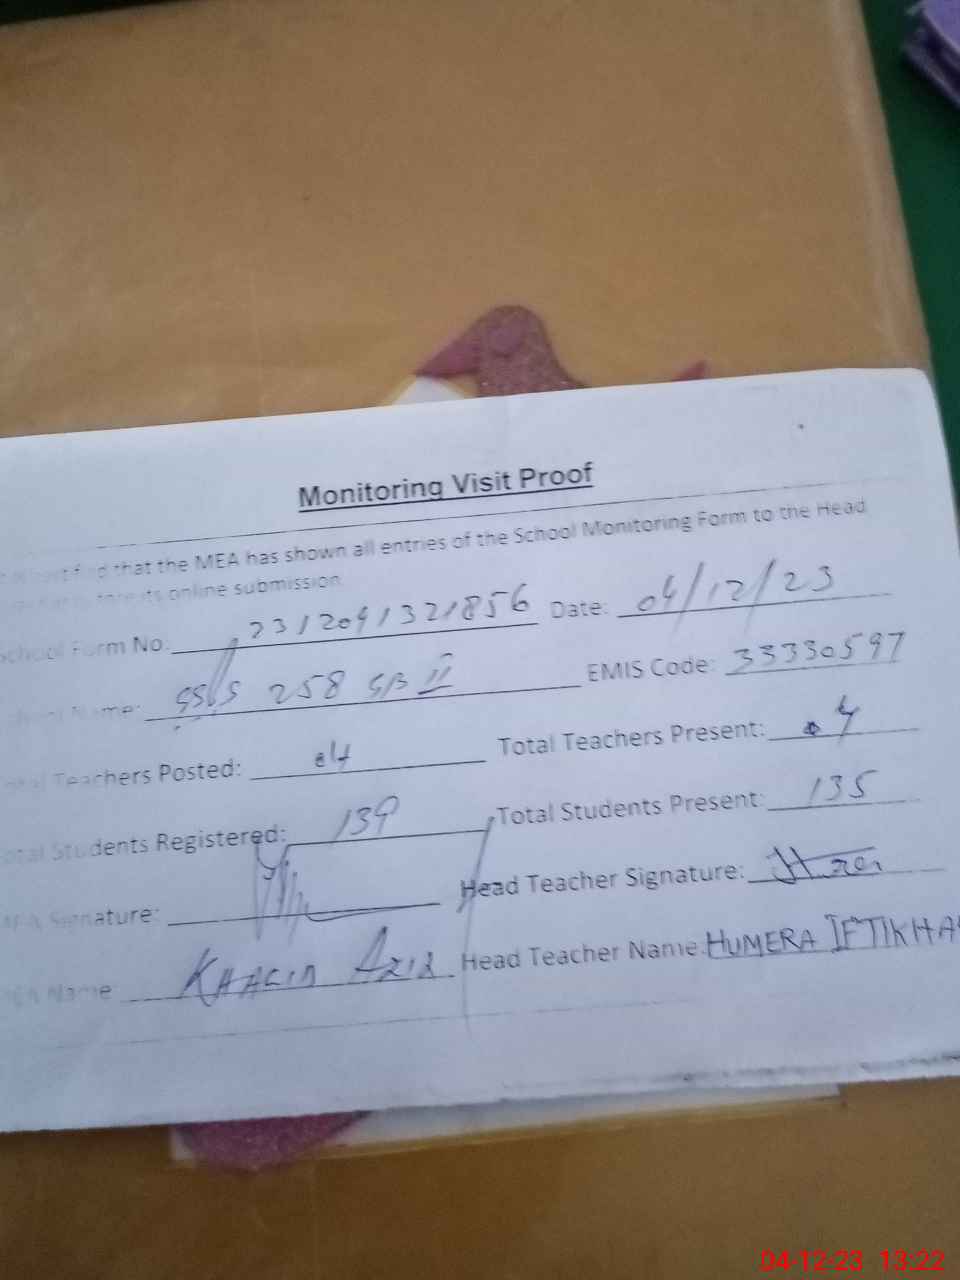 Monitoring Visit Proof
that the MEA has shown all entries of the School Monitoring Form to the Head
online submission
School Form No: 2312041321856 Date: 04/12/23
258 GB II EMIS Code: 33330597
Total Teachers Posted: 04 Total Teachers Present: 04
Total Students Registered: 139 Total Students Present: 135
MEA Signature: Head Teacher Signature:
MEA Name: KHALID AZIZ Head Teacher Name: HUMERA IFTIKHA
04-12-23 13:22